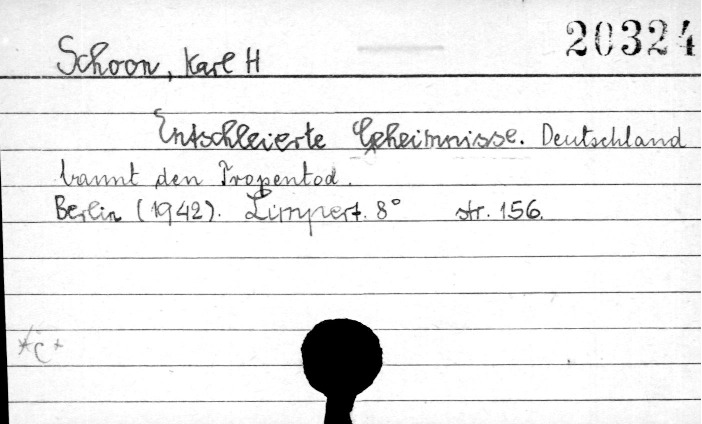 20324
Schoon, Karl H
Entschleierte Geheimnisse. Deutschland
bannt den Tropentod.
Berlin (1942). Limpert. 8° str. 156.
*c+